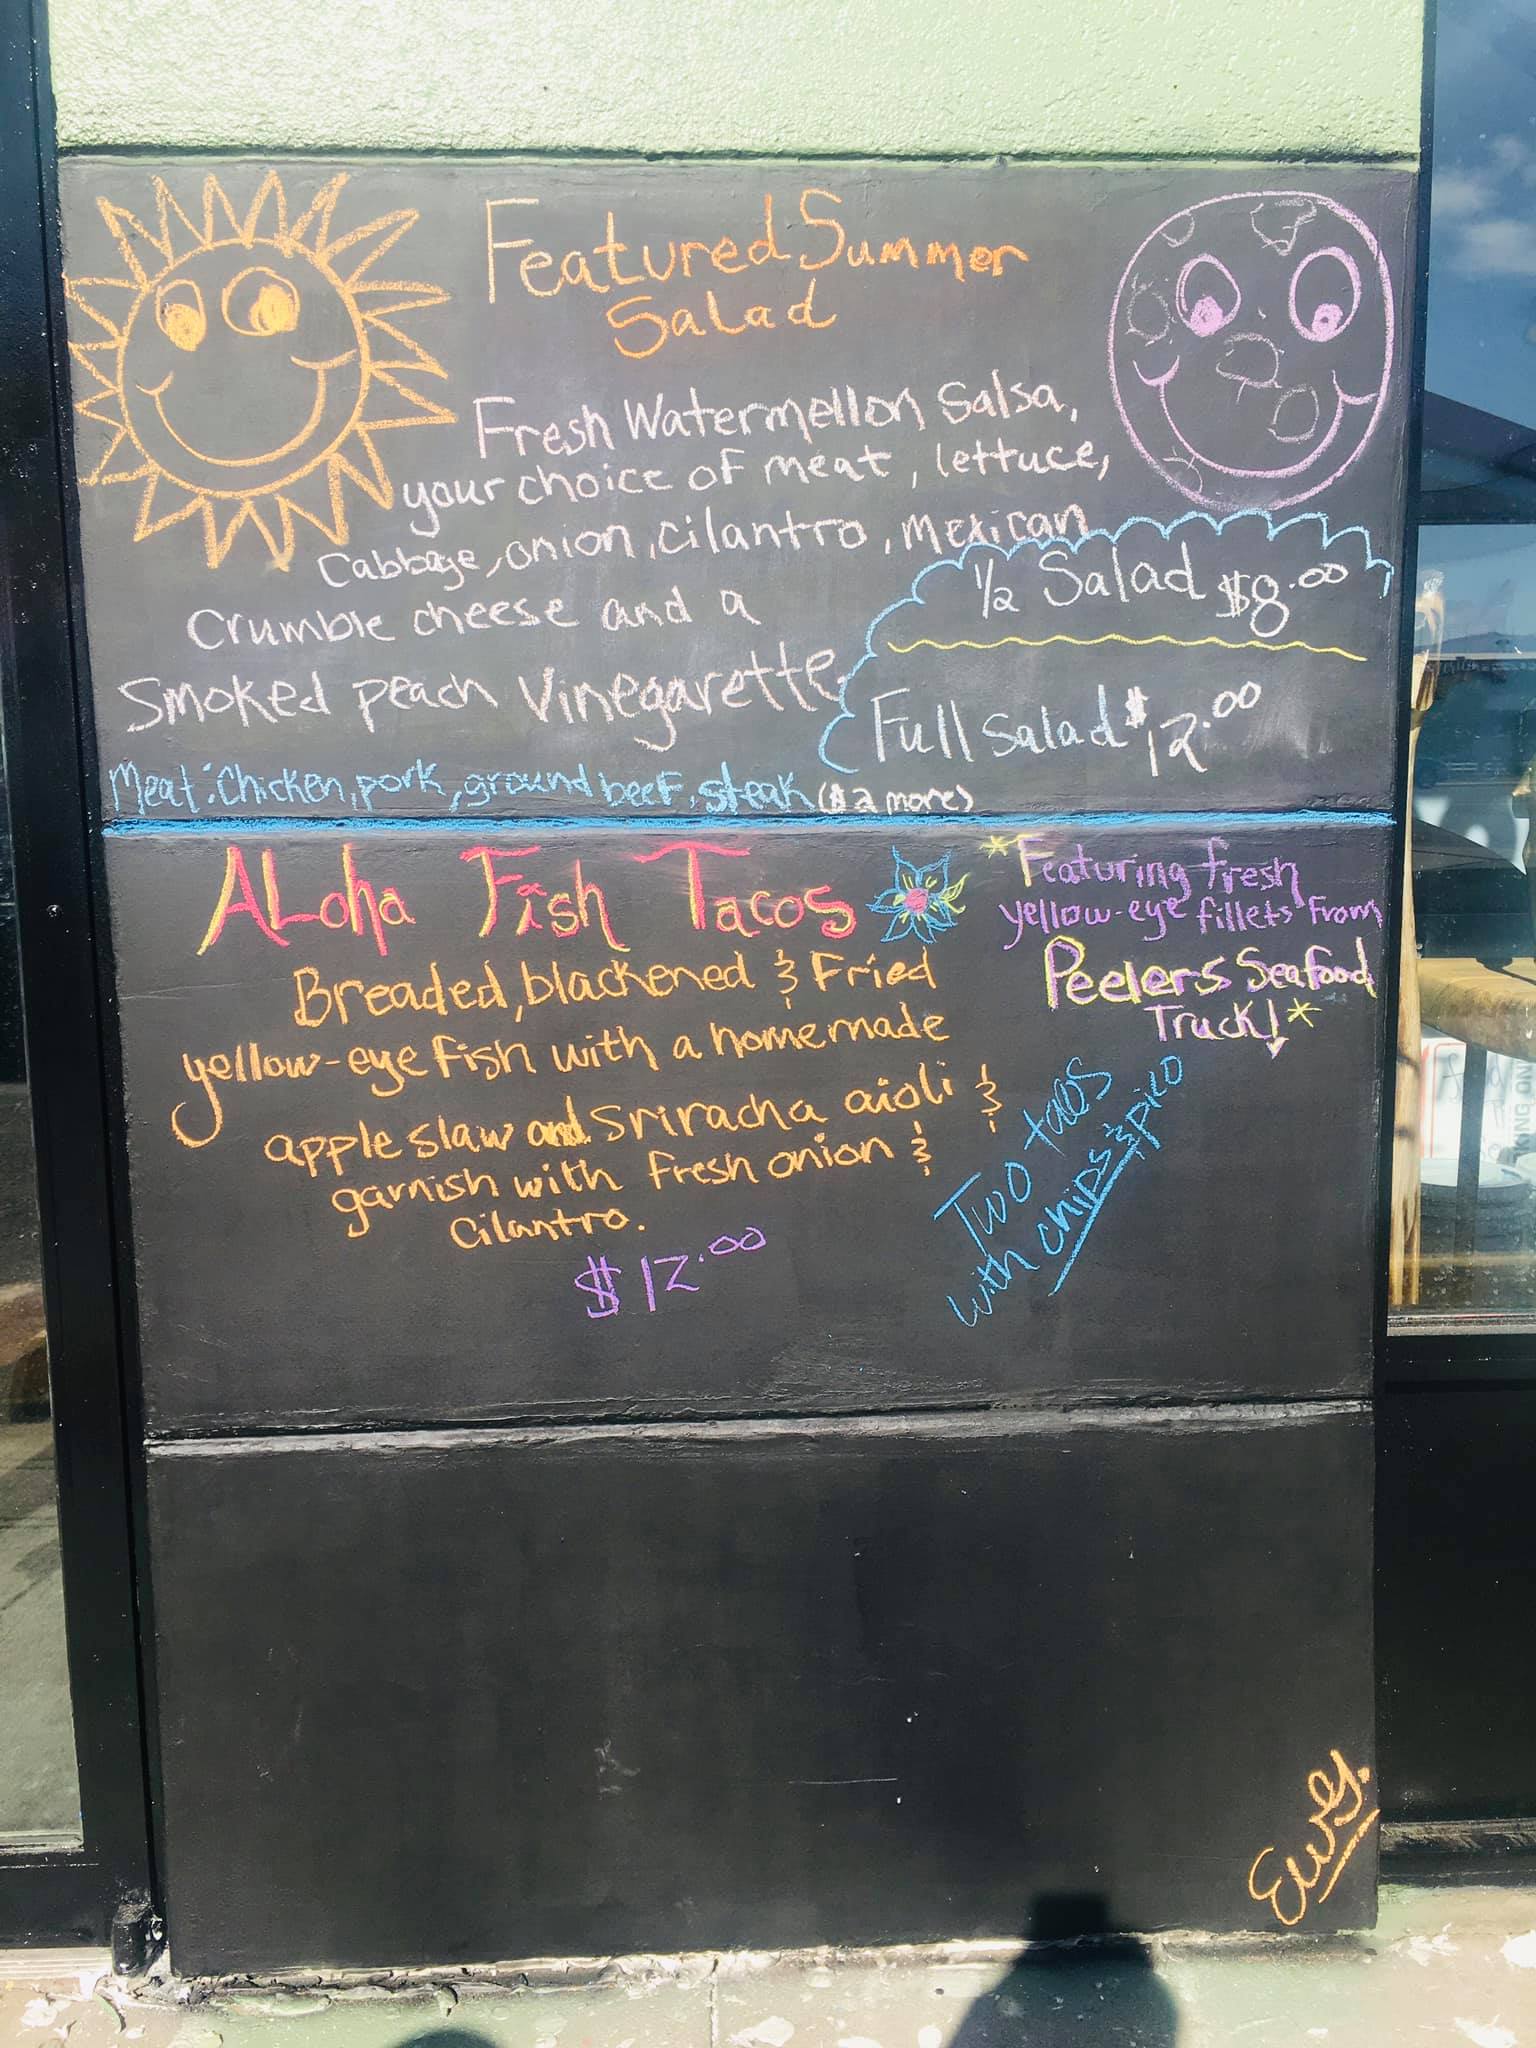 Featured Summer
Salad
Fresh Watermellon Salsa,
your choice of meat, lettuce,
Cabbage, onion, cilantro, Mexican
Crumble cheese and a
Smoked peach Vinegarette.
1/2 Salad $8.00
Full Salad $12.00
Meat: Chicken, pork, ground beef, steak ($2 more)
ALoha Fish Tacos
Breaded, blackened & Fried
yellow-eye fish with a homemade
apple slaw and sriracha aioli &
garnish with fresh onion &
Cilantro.
$12.00
*Featuring fresh
yellow-eye fillets From
Peelers Seafood
Truck!*
Two tacos
with chips & pico